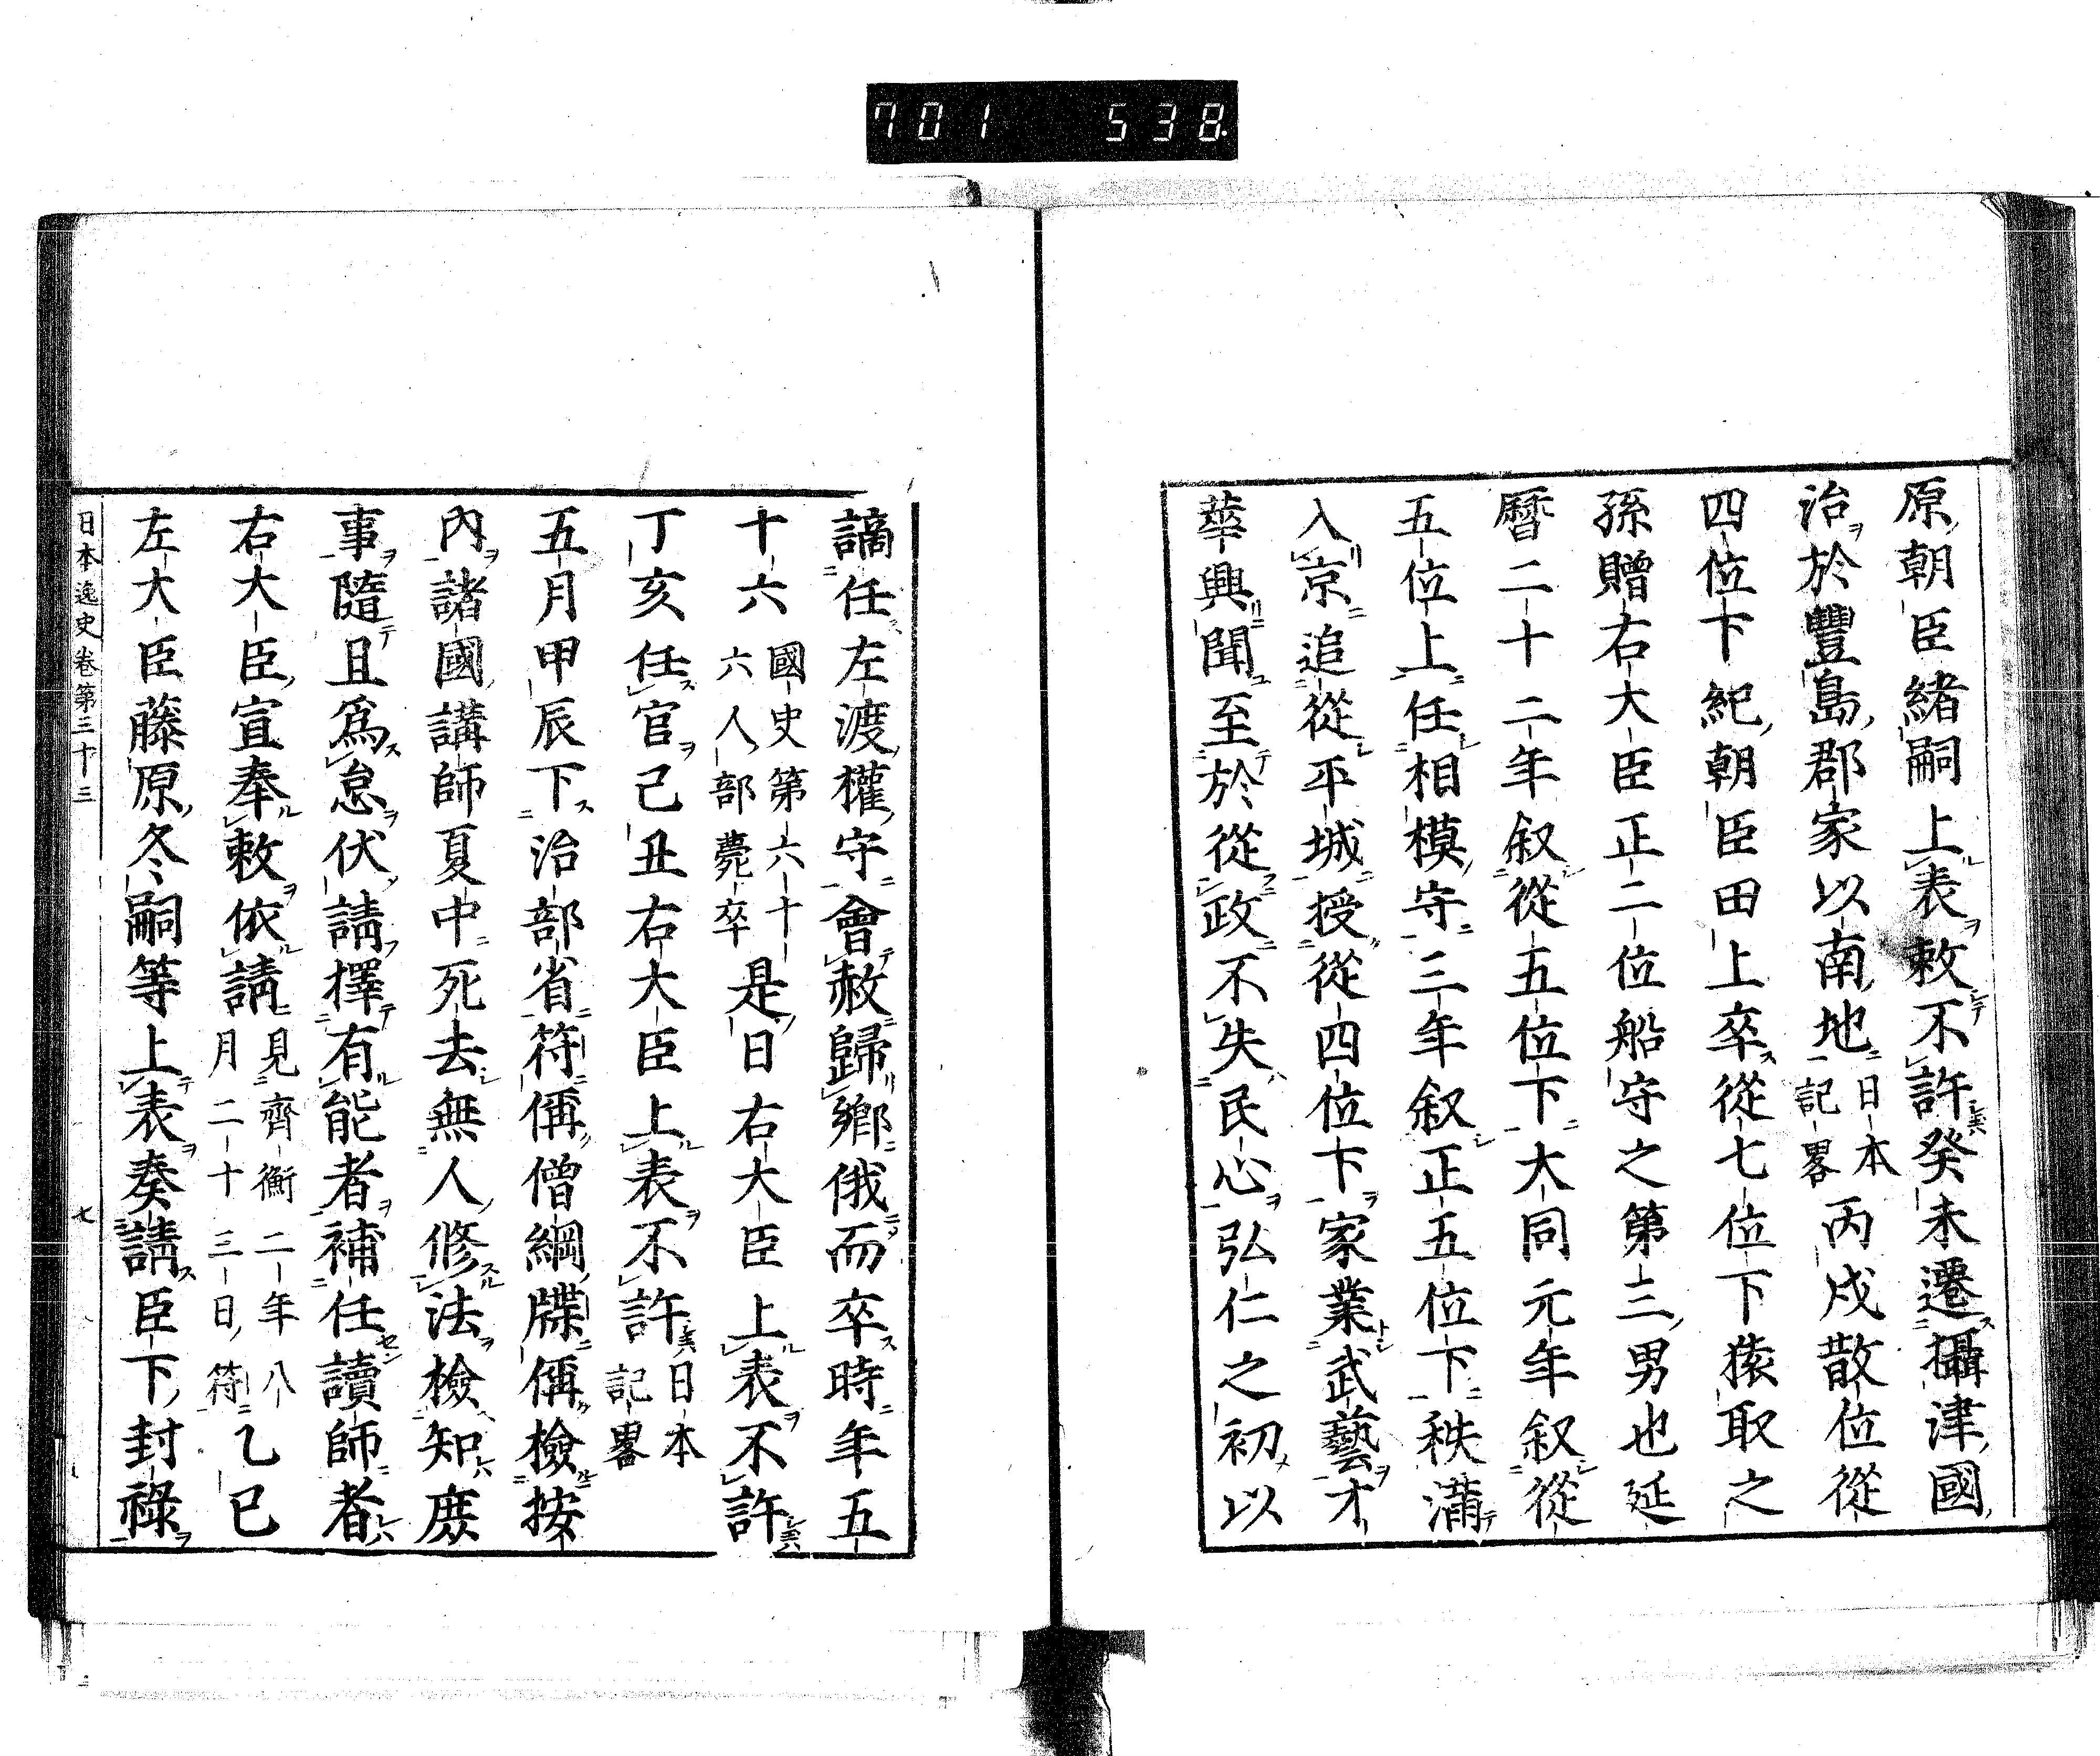 701 538
原朝臣緒嗣上表敕不許癸未遷攝津國
治於豐島郡家以南地日本記畧丙戌散位從
四位下紀朝臣田上卒從七位下猿取之
孫贈右大臣正二位船守之第三男也延
曆二十二年叙從五位下大同元年叙從
五位上任相模守三年叙正五位下秩滿
入京追從平城授從四位下家業武藝才
華興聞至於從政不失民心弘仁之初以
謫任左渡權守會赦歸鄉俄而卒時年五
十六國史第六十六人部薨卒是日右大臣上表不許
丁亥任官己丑右大臣上表不許日本記畧
五月甲辰下治部省符偁僧綱牒偁檢按
內諸國講師夏中死去無人修法檢知庶
事隨且爲怠伏請擇有能者補任讀師者
右大臣宣奉敕依請見齊衡二年八月二十三日符乙巳
左大臣藤原冬嗣等上表奏請臣下封祿
日本逸史卷第三十三 七